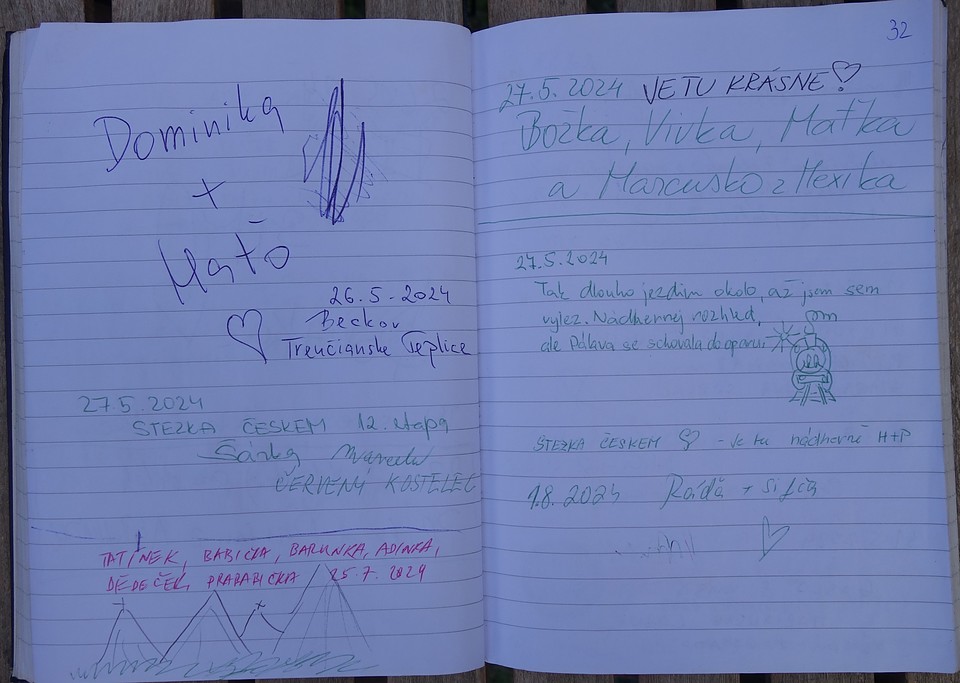 Dominika
+
Maťo
26.5-2024
Beckov
Trenčianske Teplice
27.5.2024
STEZKA ČESKEM 12. etapa
Šárka
ČERVENÝ KOSTELEC
TATÍNEK, BABIČKA, BARUNKA, ADINKA,
DĚDEČEK, PRABABIČKA 25.7.2024
32
27.5.2024 JE TU KRÁSNE
Božka, Vivka, Maťka
a Marcusko z Mexika
27.5.2024
Tak dlouho jezdím okolo, až jsem sem
vylez. Nádhernej rozhled,
ale Pálava se schovala do oparu
STEZKA ČESKEM - Je tu nádherně H+P
1.8.2024